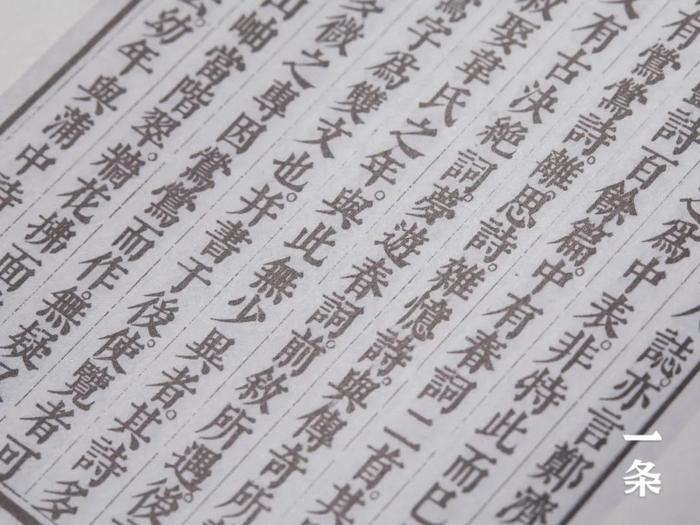 誌。亦言鄭濟
之為中表。非特此而已
詩百餘篇。中有春詞二首。其
有鶯鶯詩。離思詩。雜憶詩。與傳奇所
有古決絕詞。夢遊春詞。前敘所遇。後
娶韋氏之年。與此無少異者。其詩多
字為雙文也。并書于後。使覽者可
多微之專因鶯鶯而作。無疑
岫當階翠。牆花拂面
幼年與蒲中
一条